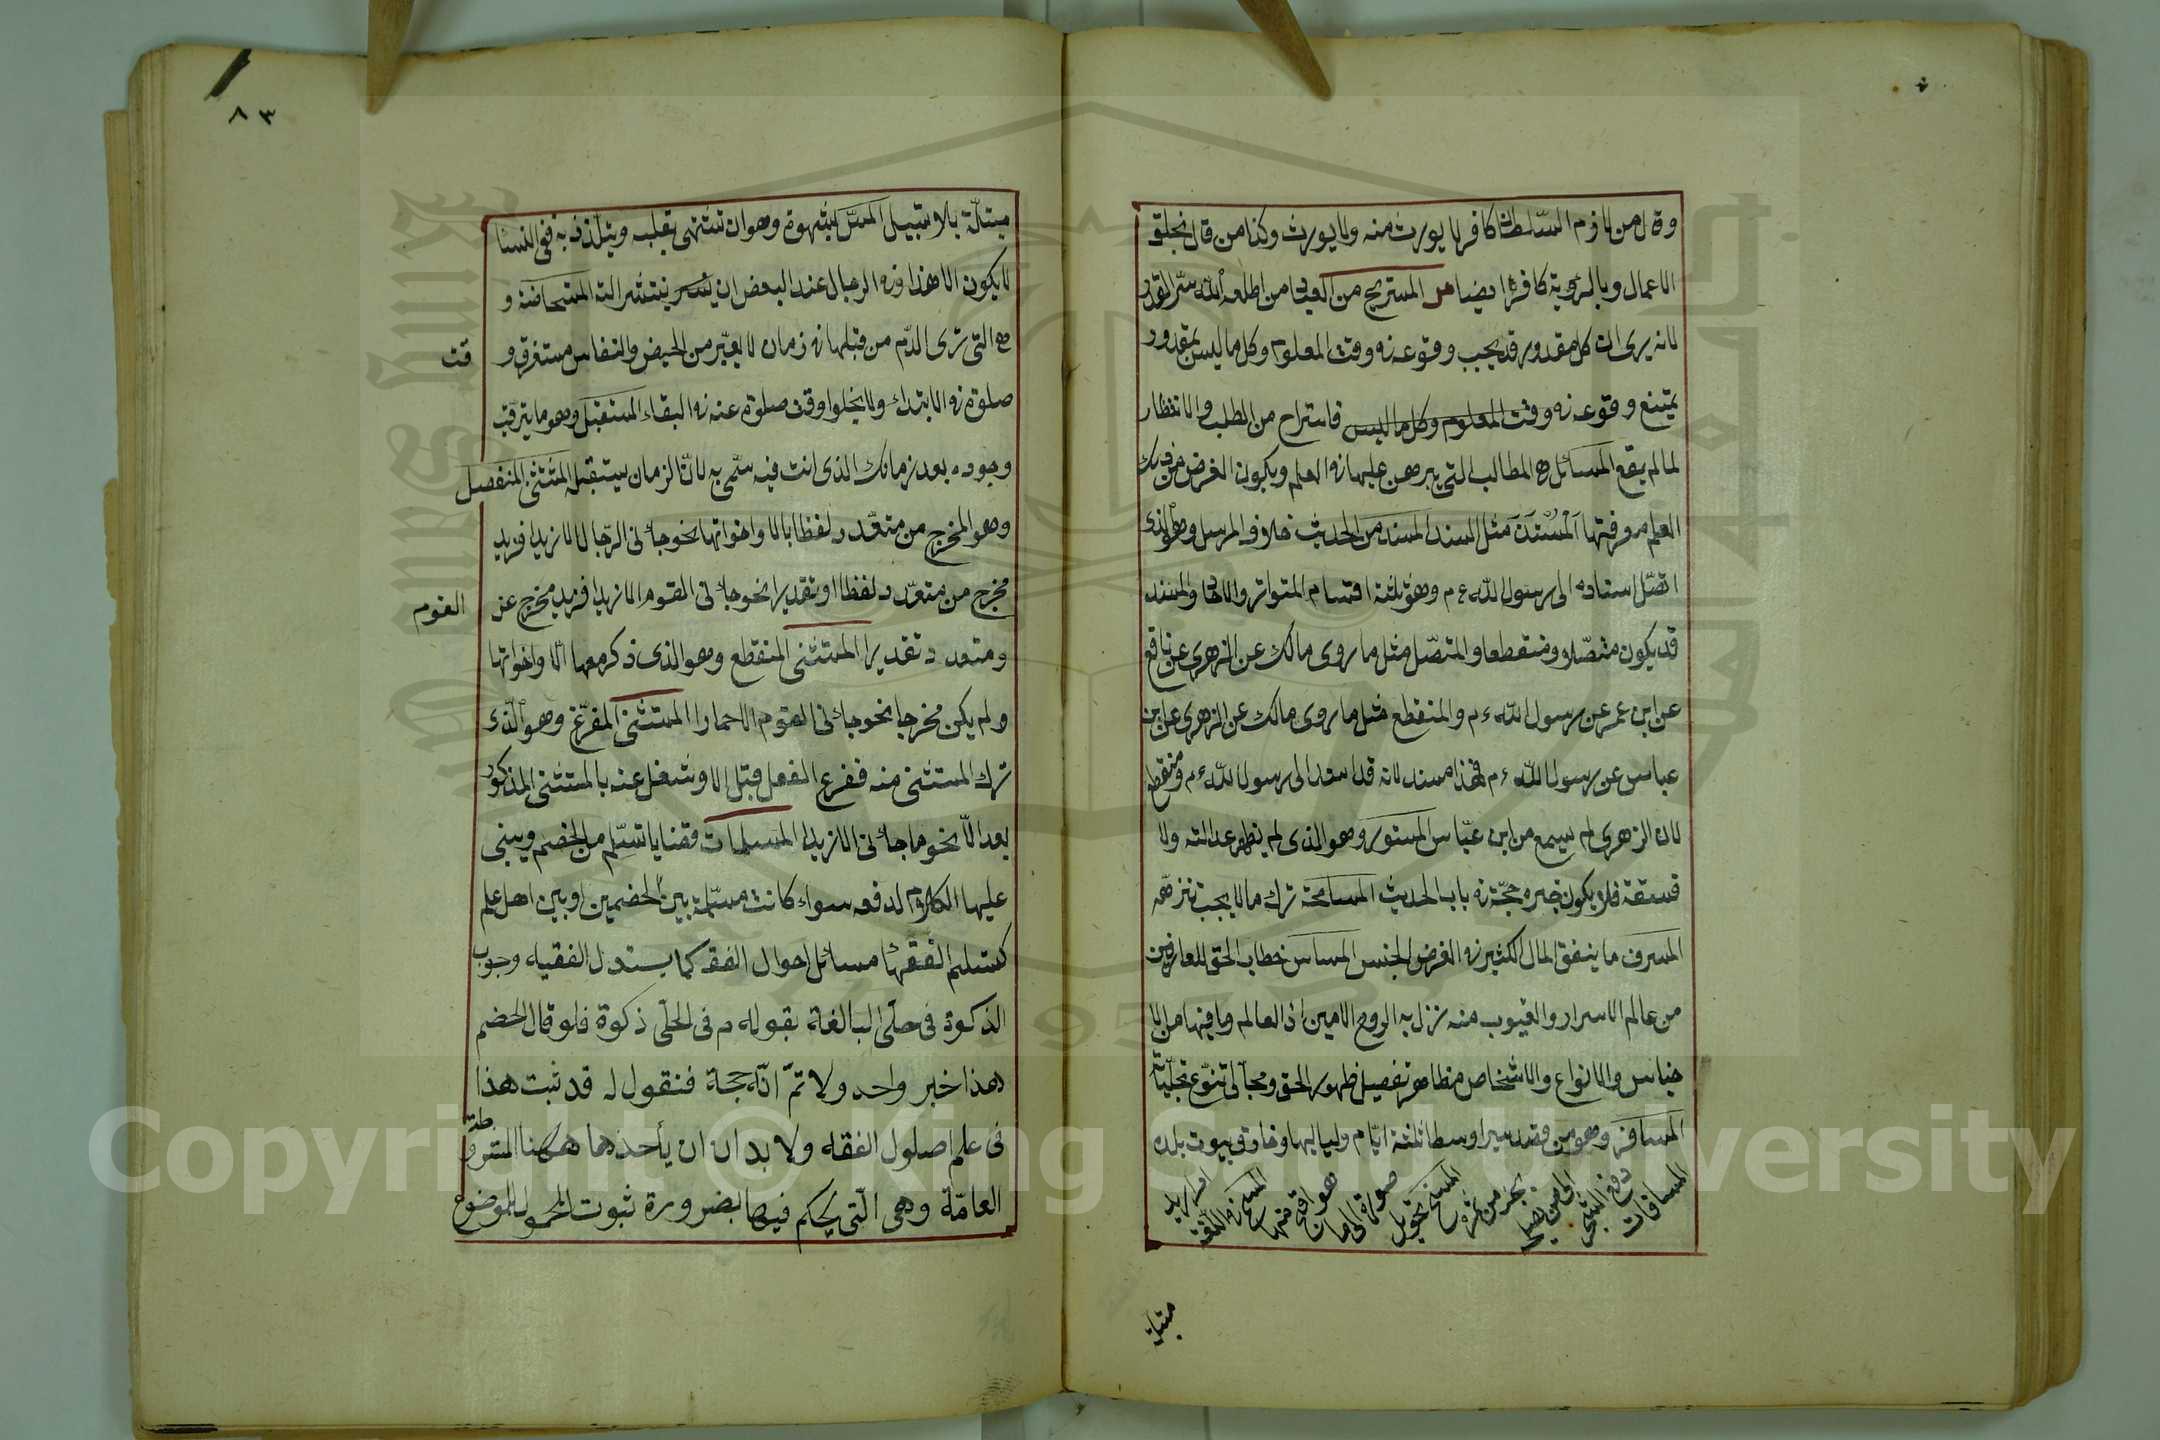 وقال من لازم السلطان كافر لا يورث منه ولا يورث وكذا من قال بخلق
الاعمال وبالرؤية كافر ايضا المستريح من العباد من اطلعه الله سر القدر
لانه يرى ان كل مقدور قد يجب وقوعه في وقته المعلوم وكل ما ليس بمقدور
يمتنع وقوعه في وقته المعلوم وكل ما ليس فاستراح من الطلب والانتظار
لما لم يقع المسائل هي المطالب التي يبرهن عليها في العلم ويكون الغرض من ذلك
العلم معرفتها المسند مثل السند المسند من الحديث خلاف المرسل وهو الذي
اتصل اسناده الى رسول الله ءم وهو ثلثة اقسام المتواتر والاحاد والمسند
قد يكون متصلا ومنقطعا والمتصل مثل ما روى مالك عن الزهري عن نافع
عن ابن عمر عن رسول الله ءم والمنقطع مثل ما روى مالك عن الزهري عن ابن
عباس عن رسول الله ءم فهذا مسند لانه قد اسند الى رسول الله ءم ومنقطع
لان الزهري لم يسمع من ابن عباس المستور وهو الذي لم يظهر عدالته ولا
فسقه فلا يكون خبره حجة في باب الحديث المسامحة ترك ما لا يجب تنزها
المسرف ما ينفق المال الكثير في الغرض الخسيس المسامرة خطاب الحق للعارفين
من عالم الاسرار والغيوب منه نزل به الروح الامين اذ العالم وما فيها من الا
جناس والانواع والاشخاص مظاهر تفصيل ظهور الحق ومجالى تنوع تجلياته
المسافر وهو من قصد سيرا وسطا ثلثة ايام ولياليها وفارق بيوت بلده
المساقات دفع الشجر الى من يصلحه بجزء من ثمره المسخ تحويل صورة الى ما هو اقبح منها المسح في اللغة امرار اليد
مبتلة
٨٣
مبتلة بلا تسييل المس بشهوة وهو ان تشتهى بقلبه ويتلذذ به ففي النساء
لا يكون الا هذا وفي الرجال عند البعض ان ينتشر الته المستحاضة و
هي التي ترى الدم من قبلها في زمان لا يعتبر من الحيض والنفاس مستغرقا و
قت
صلوة في الابتداء ولا يخلوا وقت صلوة عنه في البقاء المستقبل وهو ما يترقب
وجوده بعد زمانك الذي انت فيه سمي به لان الزمان يستقبله المستثنى المتصل
وهو المخرج من متعدد لفظا بالا واخواتها نحو جاءني الرجال الا زيدا فزيد
مخرج من متعدد لفظا او تقديرا نحو جاءني القوم الا زيدا فزيد مخرج عن
القوم
و متعدد تقديرا المستثنى المنقطع وهو الذي ذكر معها الا واخواتها
ولم يكن مخرجا نحو جاءني القوم الا حمارا المستثنى المفرغ وهو الذي
ترك المستثنى منه ففرغ الفعل قبل الا وشغل عنه بالمستثنى المذكور
بعد الا نحو ما جاءني الا زيد المسلمات قضايا تسلم من الخصم ويبنى
عليها الكلام لدفعه سواء كانت مسلمة بين الخصمين او بين اهل علم
كتسليم الفقهاء مسائل احوال الفقه كما يستدل الفقيه وجوب
الذكوة في حلى البالغة بقوله ءم في الحلى ذكوة فلو قال الخصم
هذا خبر واحد ولا تم انه حجة فنقول له قد ثبت هذا
في علم اصلول الفقه ولا بد ان ان يأخذها ههنا المشروطة
العامة وهي التي يحكم فيها بضرورة ثبوت المحمول للموضوع
Copyright © King Saud University
King Saud University
1957